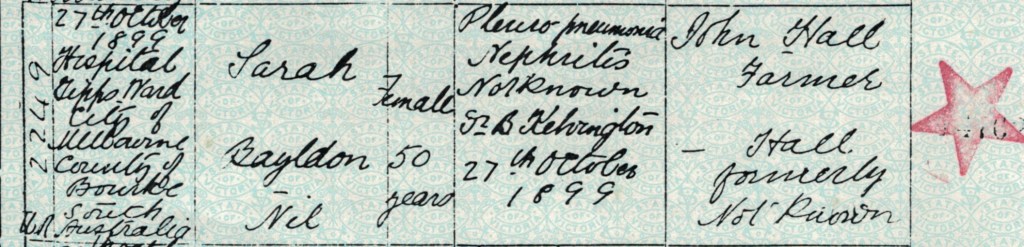 2249
27th October
1899
Hospital
Gipps Ward
City of
Melbourne
County of
Bourke
South
Australia
Sarah
Bayldon
Nil
Female
50
years
Pleuro pneumonia
Nephritis
Not Known
Dr B Kelvington
27th October
1899
John Hall
Farmer
— Hall
formerly
Not Known